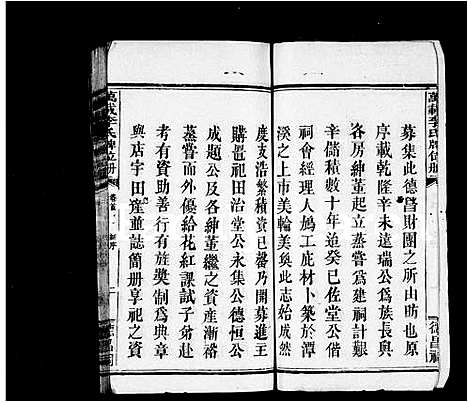 萬載李氏牌位册
募集此德昌財團之所由昉也原
序載乾隆辛未遠瑞公爲族長與
各房紳董起立蒸嘗爲建祠計艱
辛儲積數十年迨癸巳佐堂公偕
祠會經理人鳩工庀材卜築於潭
溪之上市美輪美奐此志始成然
度支浩繁積資已罄乃開募進主
購置祀田治堂公永集公德恒公
成題公及各紳董繼之資產漸裕
蒸嘗而外優給花紅課試子弟赴
考有資助善行有獎制爲典章
與店宇田產並誌簡册享祀之資
萬載李氏牌位册